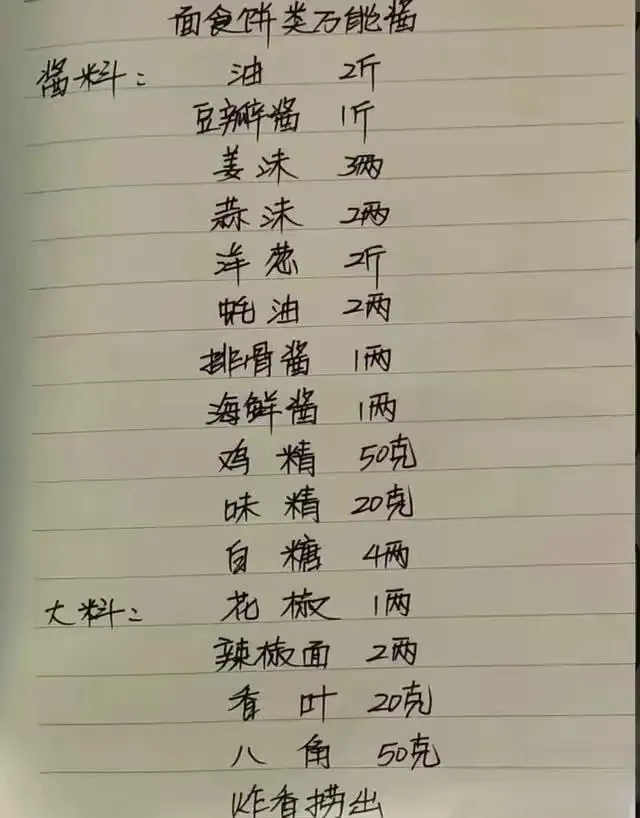 面食饼类万能酱
酱料： 油 2斤
豆瓣酱 1斤
姜沫 3两
蒜沫 2两
洋葱 2斤
蚝油 2两
排骨酱 1两
海鲜酱 1两
鸡精 50克
味精 20克
白糖 4两
大料： 花椒 1两
辣椒面 2两
香叶 20克
八角 50克
炸香捞出